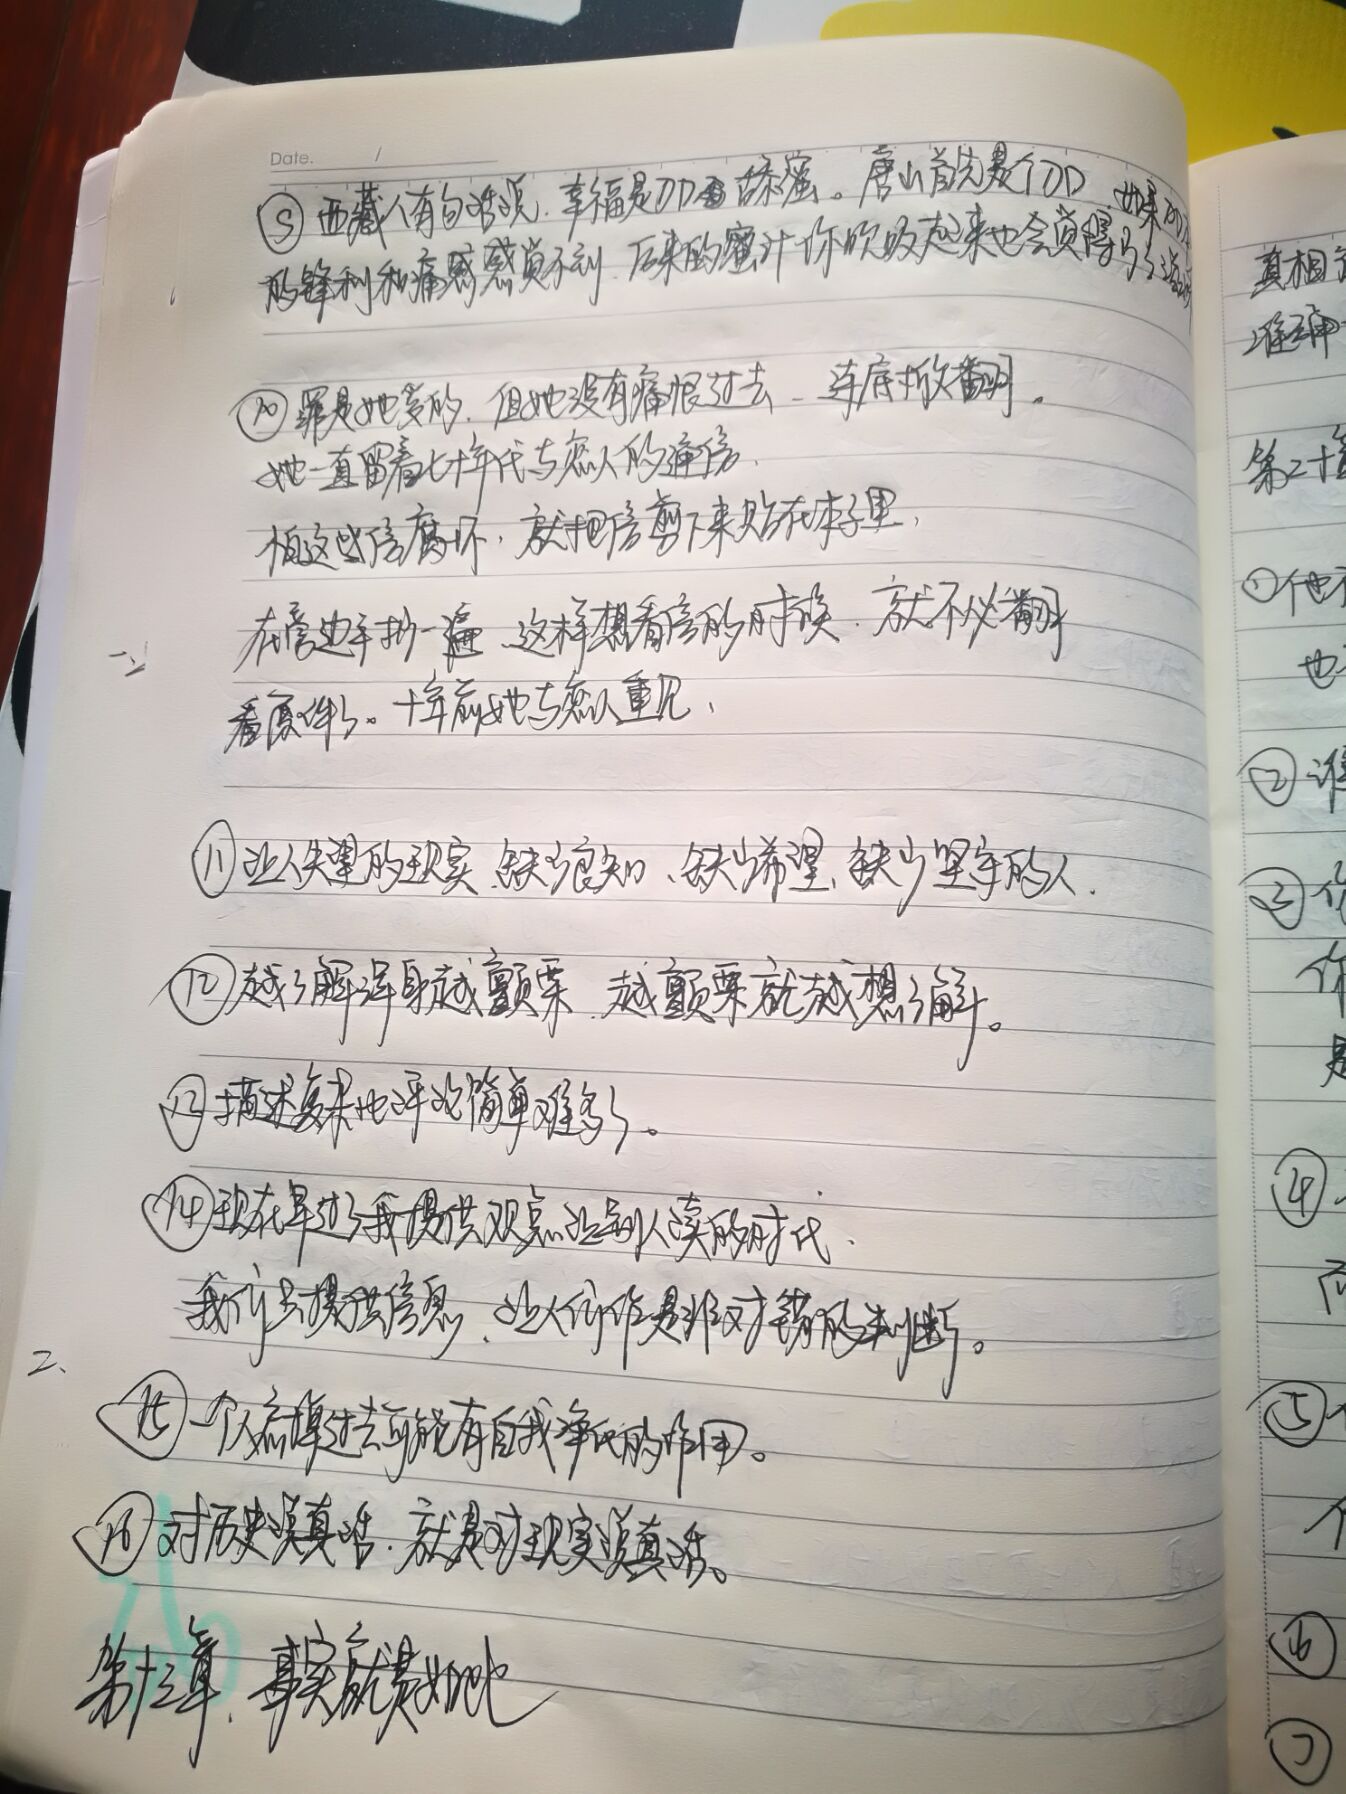 Date. /
⑨ 西藏人有句话说，幸福是刀口舔蜜。唐山首先是个刀口，如果刀口
的锋利和痛感感觉不到，后来的蜜汁你吮吸起来也会觉得
⑩ 罪是她受的，但她没有痛恨过去，连底掀翻。
她一直留着七十年代与恋人的通信，
怕这些信腐坏，就把信剪下来贴在本子里，
在旁边手抄一遍，这样想看信的时候，就不必翻
看原件了。十年前她与恋人重见，
⑪ 让人失望的现实，缺少良知，缺少希望，缺少坚守的人.
⑫ 越了解浑身越颤栗，越颤栗就越想了解。
⑬ 描述复杂比评论简单难多了。
⑭ 现在早过了我提供观点让别人读的时代.
我们去提供信息，让人们作是非对错的判断。
2.
⑮ 一个人忘掉过去可能有自我净化的作用。
⑯ 对历史说真话，就是对现实说真话。
第十三章，事实就是如此
真相
准确
第二十章
① 他
也
②
③
你
是
④
⑤
个
⑥
⑦